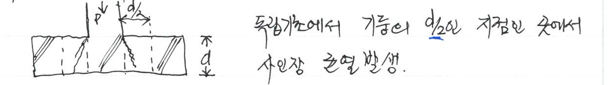 P
d/2
d
독립기초에서 기둥의 d/2인 지점인 곳에서
사인장 균열발생.